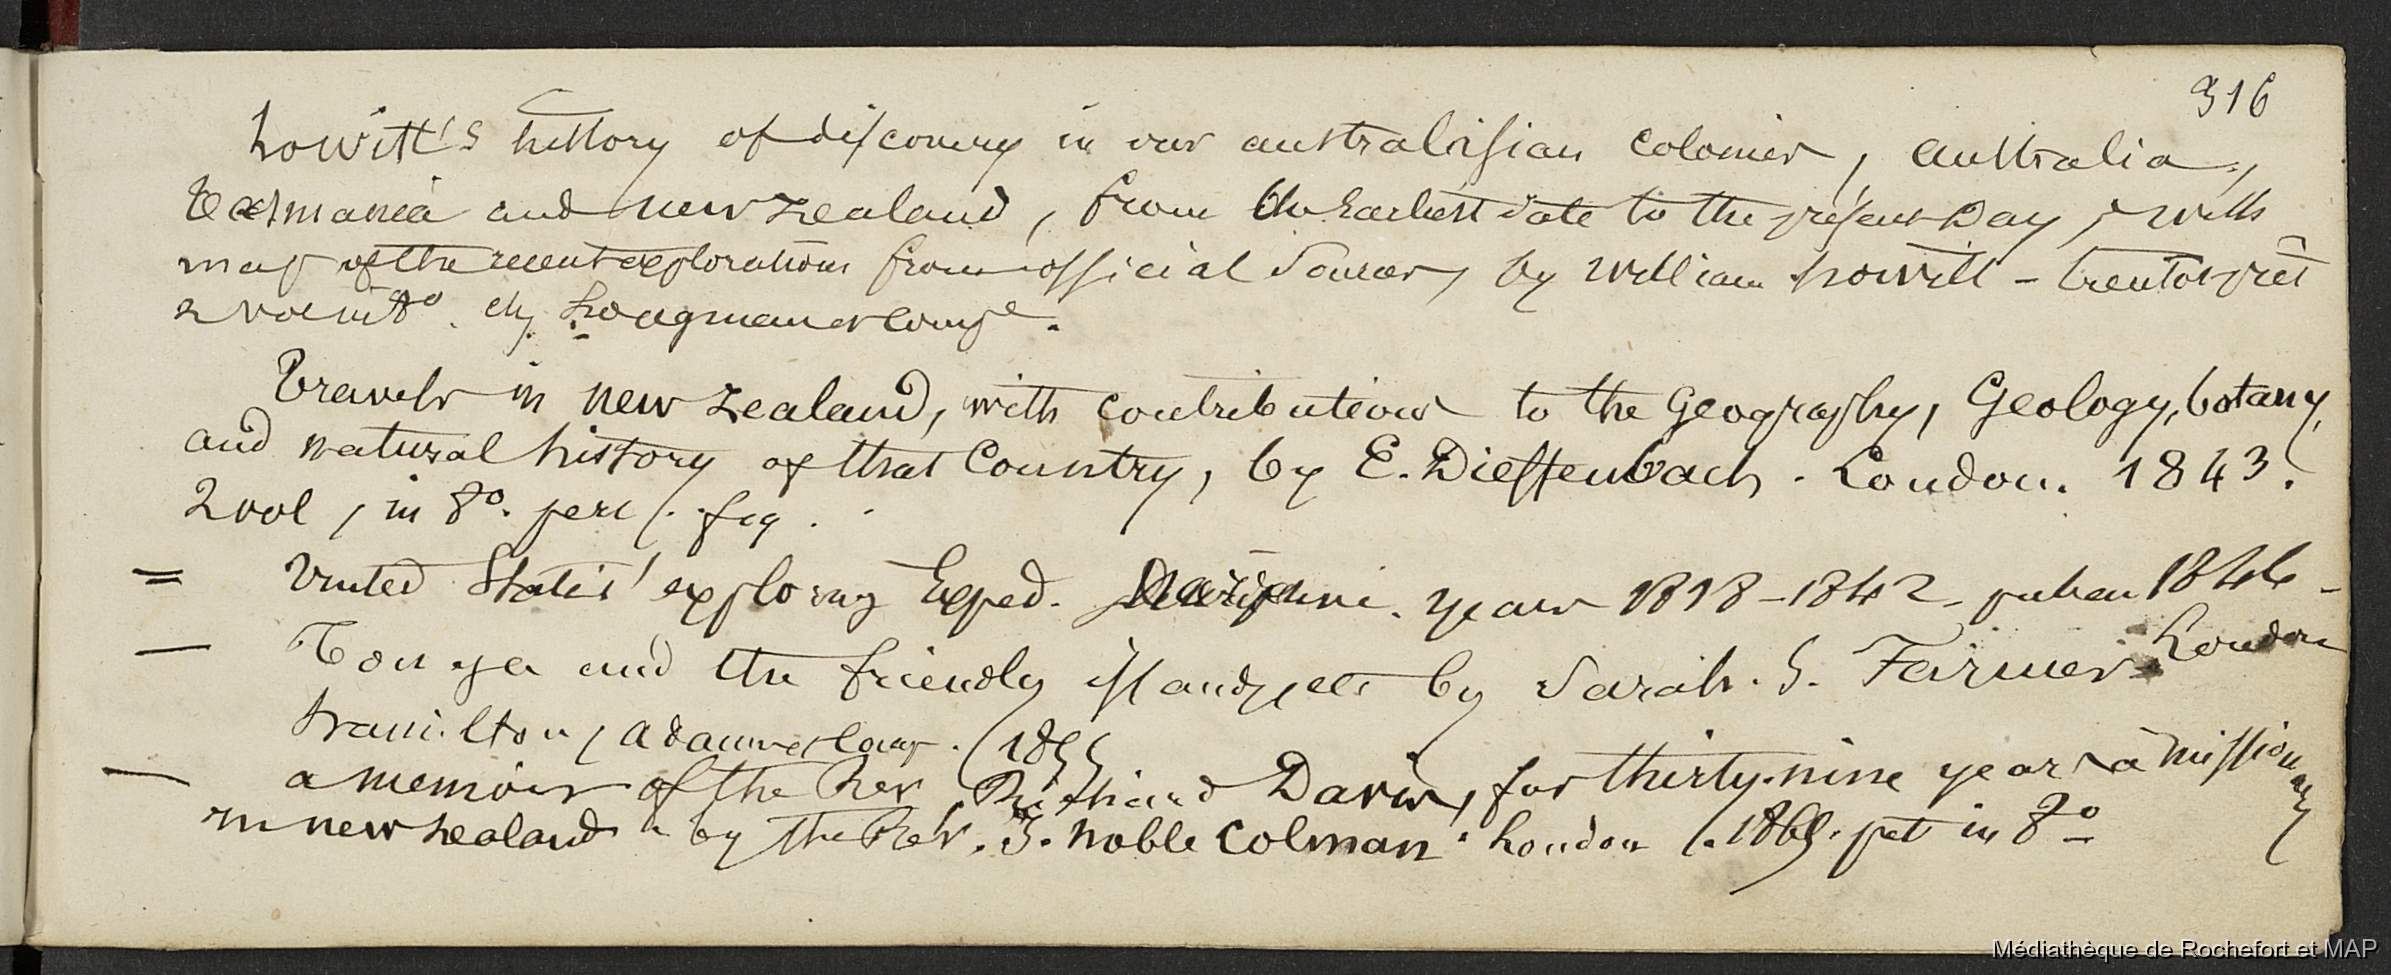 316
howitt's history of discovery in our australisian colonies, australia,
tasmania and new zealand, from the Earliest date to the present Day, with
map of the recent explorations from official Sources, by William howitt –
2 vol in 8º. chez Longman et compe.
Travels in new zealand, with contributions to the Geography, Geology, botany,
and natural history of that Country, by E. Dieffenbach. London. 1843.
2 vol, in 8º. fig.
= United States' exploring Exped. years 1818–1842 – 1846 –
— Tonga and the friendly islands, by Sarah. S. Farmer London
hamilton, adam (1855
— a memoir of the Rev. Richard Davis, for thirty-nine years a missionary
in new zealand – by the Rev. J. noble Colman. London. 1865. pet in 8º
Médiathèque de Rochefort et MAP